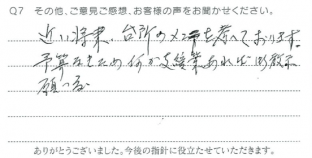 Q7 その他、ご意見ご感想、お客様の声をお聞かせください。
近い将来、台所のメンテを考えております。
予算なきため何か支援業あれば御教示
願つる
ありがとうございました。今後の指針に役立たせていただきます。